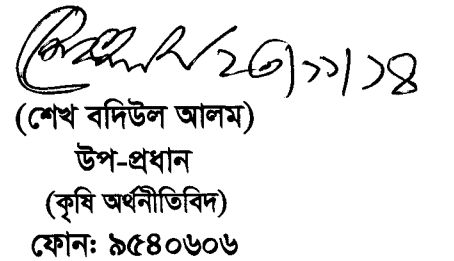 ২৩/১১/১৪
(শেখ বদিউল আলম)
উপ-প্রধান
(কৃষি অর্থনীতিবিদ)
ফোনঃ ৯৫৪০৬০৬